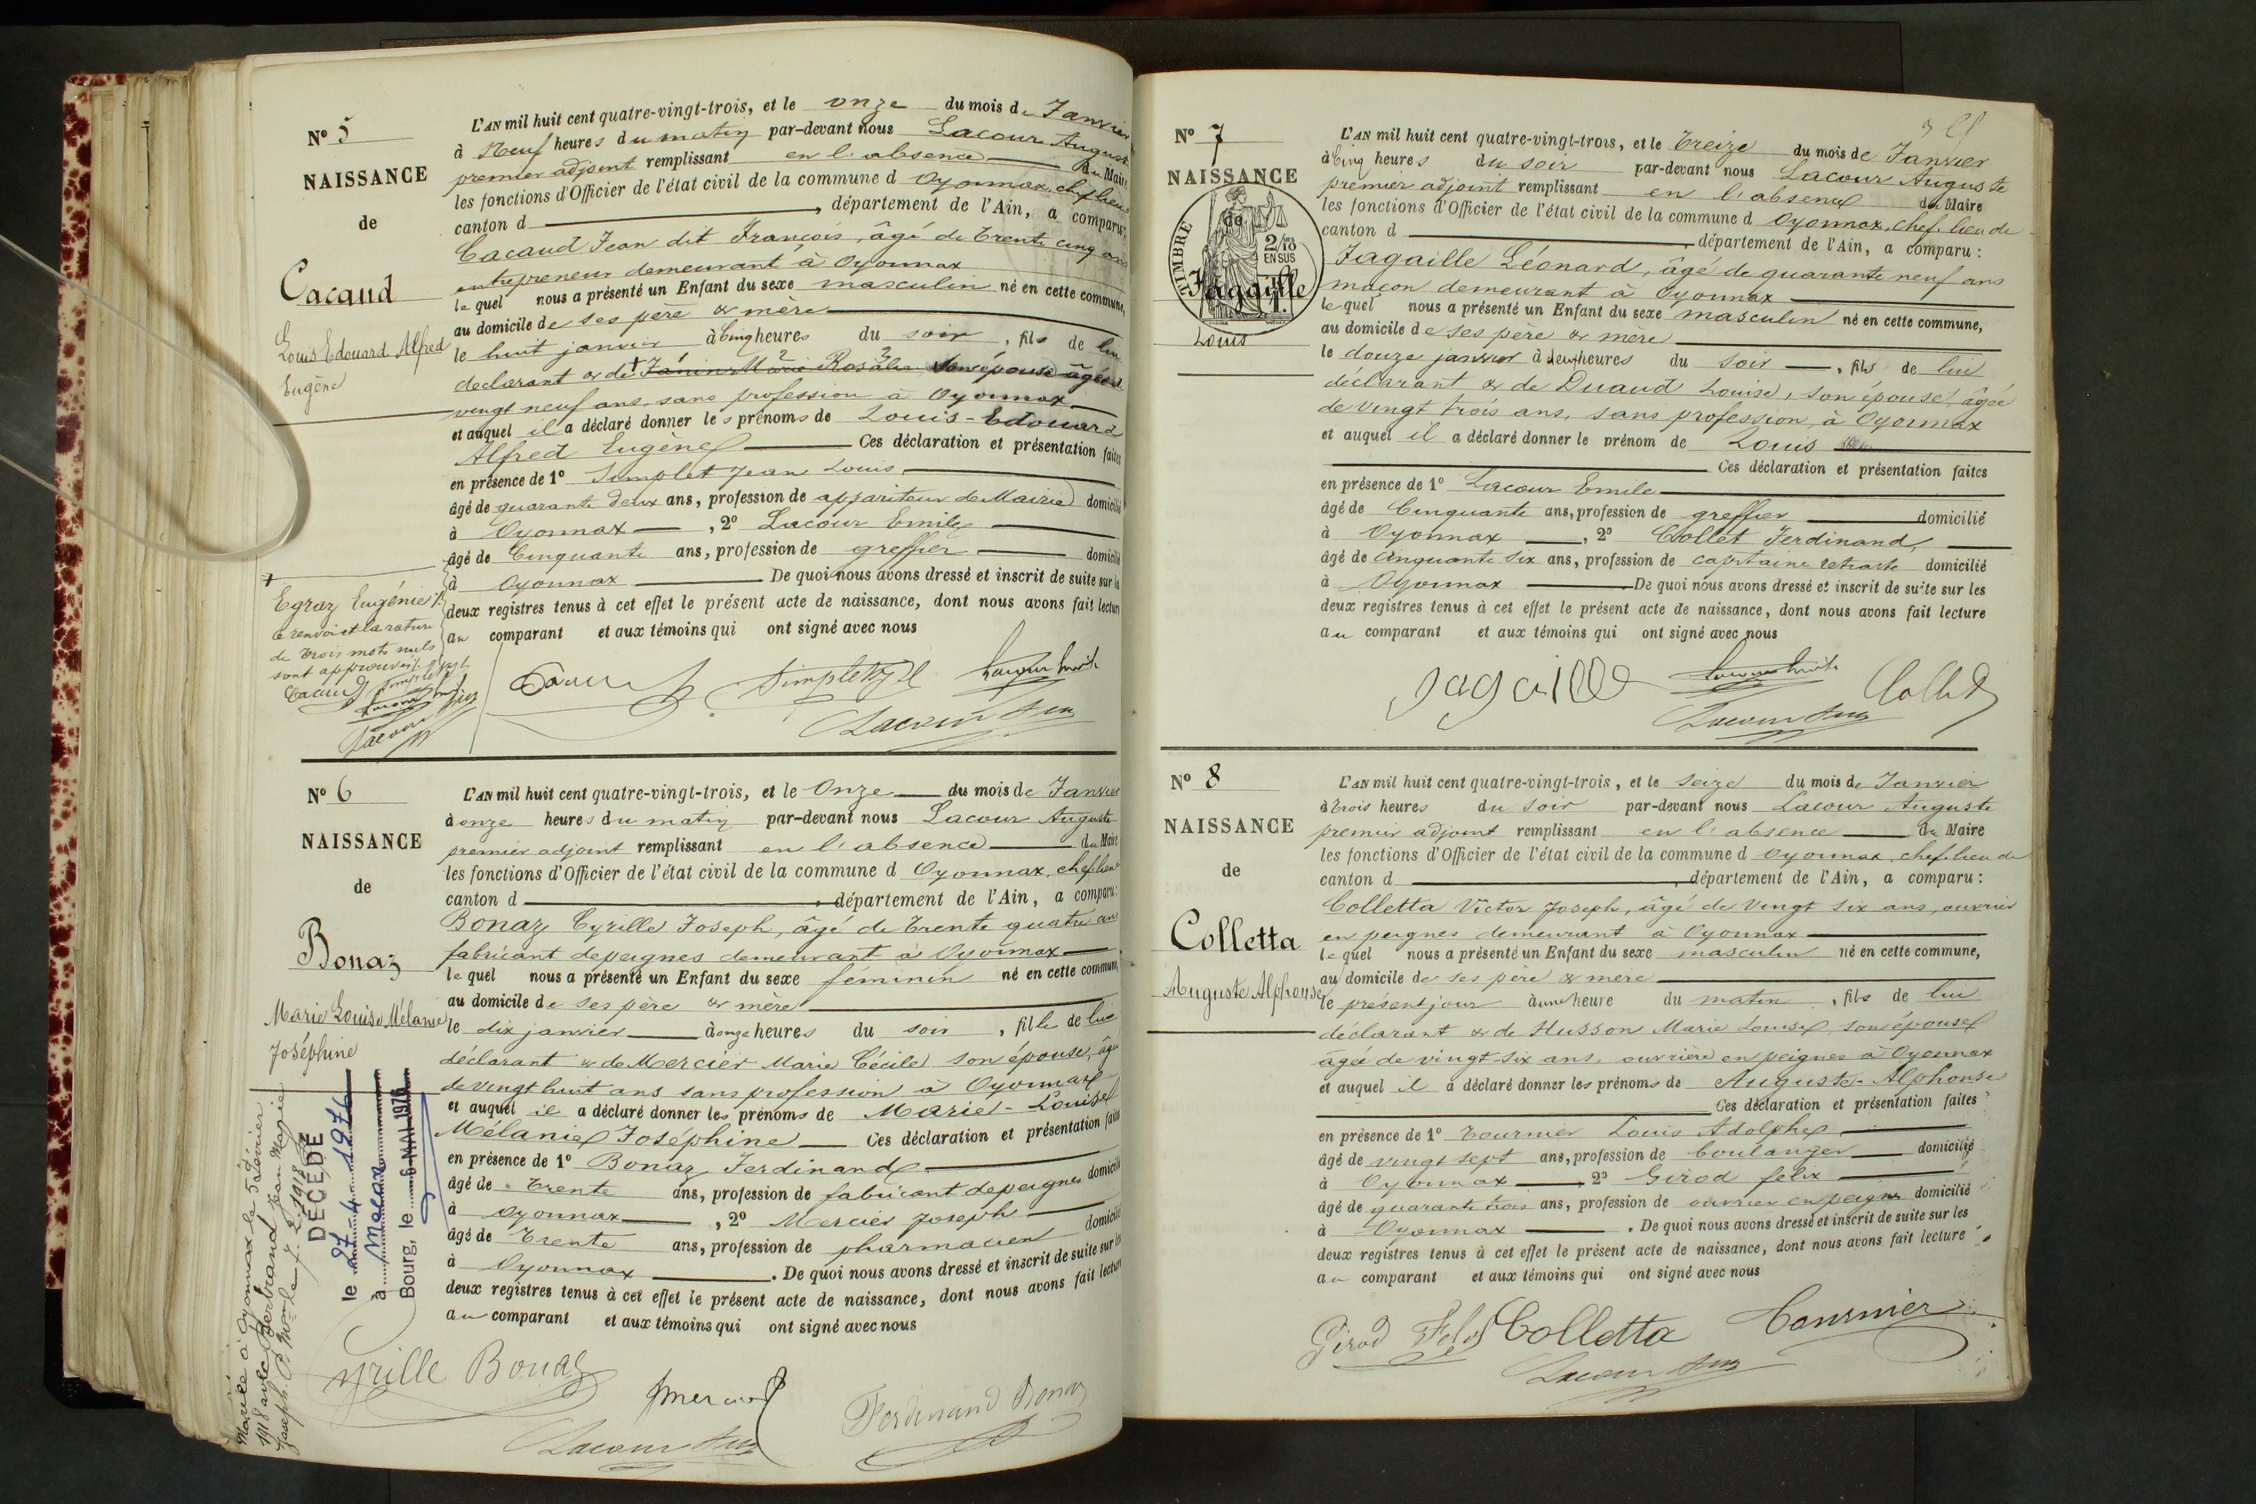 N° 5
NAISSANCE
de
Cacaud
Louis Edouard Alfred
Eugène
L'AN mil huit cent quatre-vingt-trois, et le onze du mois de Janvier
à Neuf heures du matin par-devant nous Lacour Auguste
premier adjoint remplissant en l'absence du Maire
les fonctions d'Officier de l'état civil de la commune d Oyonnax, chef lieu
canton d , département de l'Ain, a comparu:
Cacaud Jean dit François, âgé de trente cinq ans
entrepreneur demeurant à Oyonnax
lequel nous a présenté un Enfant du sexe masculin né en cette commune,
au domicile de ses père & mère
le huit janvier à Cinq heures du soir , fils de lui
déclarant & de Janin Marie Rosalie son épouse âgée de
vingt neuf ans, sans profession à Oyonnax
et auquel il a déclaré donner les prénoms de Louis-Edouard
Alfred Eugène Ces déclaration et présentation faites
en présence de 1° Simplet Jean Louis
âgé de quarante deux ans, profession de appariteur de Mairie domicilié
à Oyonnax , 2° Lacour Emile
âgé de Cinquante ans, profession de greffier domicilié
à Oyonnax De quoi nous avons dressé et inscrit de suite sur les
deux registres tenus à cet effet le présent acte de naissance, dont nous avons fait lecture
au comparant et aux témoins qui ont signé avec nous
Egraz Eugénie
Ce renvoi et la rature
de trois mots nuls
sont approuvés
Cacaud
N° 6
NAISSANCE
de
Bonaz
Marie Louise Mélanie
Joséphine
L'AN mil huit cent quatre-vingt-trois, et le Onze du mois de Janvier
à onze heures du matin par-devant nous Lacour Auguste
premier adjoint remplissant en l'absence du Maire
les fonctions d'Officier de l'état civil de la commune d Oyonnax, chef lieu
canton d , département de l'Ain, a comparu:
Bonaz Cyrille Joseph, âgé de trente quatre ans
fabricant de peignes demeurant à Oyonnax
lequel nous a présenté un Enfant du sexe féminin né en cette commune,
au domicile de ses père & mère
le dix janvier à onze heures du soir , fille de lui
déclarant & de Mercier Marie Cécile son épouse, âgée
de vingt huit ans sans profession à Oyonnax
et auquel il a déclaré donner les prénoms de Marie-Louise
Mélanie Joséphine Ces déclaration et présentation faites
en présence de 1° Bonaz Ferdinand
âgé de trente ans, profession de fabricant de peignes domicilié
à Oyonnax , 2° Mercier Joseph
âgé de trente ans, profession de pharmacien domicilié
à Oyonnax . De quoi nous avons dressé et inscrit de suite sur les
deux registres tenus à cet effet le présent acte de naissance, dont nous avons fait lecture
au comparant et aux témoins qui ont signé avec nous
Mariée à Oyonnax le 5 février
1918 avec Jean Marie
Joseph
DÉCÉDÉ
le 27-4 1976
à Macon
Bourg, le 6 MAI 1976
Cyrille Bonaz
Ferdinand Bonaz
N° 7
NAISSANCE
de
TIMBRE
2/10
EN SUS
Jagaille
Louis
L'AN mil huit cent quatre-vingt-trois, et le treize du mois de Janvier
à Cinq heures du soir par-devant nous Lacour Auguste
premier adjoint remplissant en l'absence du Maire
les fonctions d'Officier de l'état civil de la commune d Oyonnax, chef lieu de
canton d , département de l'Ain, a comparu:
Jagaille Léonard, âgé de quarante neuf ans
maçon demeurant à Oyonnax
lequel nous a présenté un Enfant du sexe masculin né en cette commune,
au domicile de ses père & mère
le douze janvier à deux heures du soir , fils de lui
déclarant & de Duaud Louise, son épouse, âgée
de vingt trois ans, sans profession, à Oyonnax
et auquel il a déclaré donner le prénom de Louis
Ces déclaration et présentation faites
en présence de 1° Lacour Emile
âgé de Cinquante ans, profession de greffier domicilié
à Oyonnax , 2° Collet Ferdinand,
âgé de cinquante six ans, profession de capitaine retraité domicilié
à Oyonnax De quoi nous avons dressé et inscrit de suite sur les
deux registres tenus à cet effet le présent acte de naissance, dont nous avons fait lecture
au comparant et aux témoins qui ont signé avec nous
Jagaille
Collet
N° 8
NAISSANCE
de
Colletta
Auguste Alphonse
L'AN mil huit cent quatre-vingt-trois, et le seize du mois de Janvier
à trois heures du soir par-devant nous Lacour Auguste
premier adjoint remplissant en l'absence du Maire
les fonctions d'Officier de l'état civil de la commune d Oyonnax, chef lieu de
canton d , département de l'Ain, a comparu:
Colletta Victor Joseph, âgé de vingt six ans, ouvrier
en peignes demeurant à Oyonnax
lequel nous a présenté un Enfant du sexe masculin né en cette commune,
au domicile de ses père & mère
le présent jour à une heure du matin , fils de lui
déclarant & de Husson Marie Louise, son épouse
âgée de vingt-six ans, ouvrière en peignes à Oyonnax
et auquel il a déclaré donner les prénoms de Auguste-Alphonse
Ces déclaration et présentation faites
en présence de 1° Tournier Louis Adolphe
âgé de vingt sept ans, profession de boulanger domicilié
à Oyonnax , 2° Girod félix
âgé de quarante trois ans, profession de ouvrier en peignes domicilié
à Oyonnax . De quoi nous avons dressé et inscrit de suite sur les
deux registres tenus à cet effet le présent acte de naissance, dont nous avons fait lecture
au comparant et aux témoins qui ont signé avec nous
Girod Felix Colletta Tournier